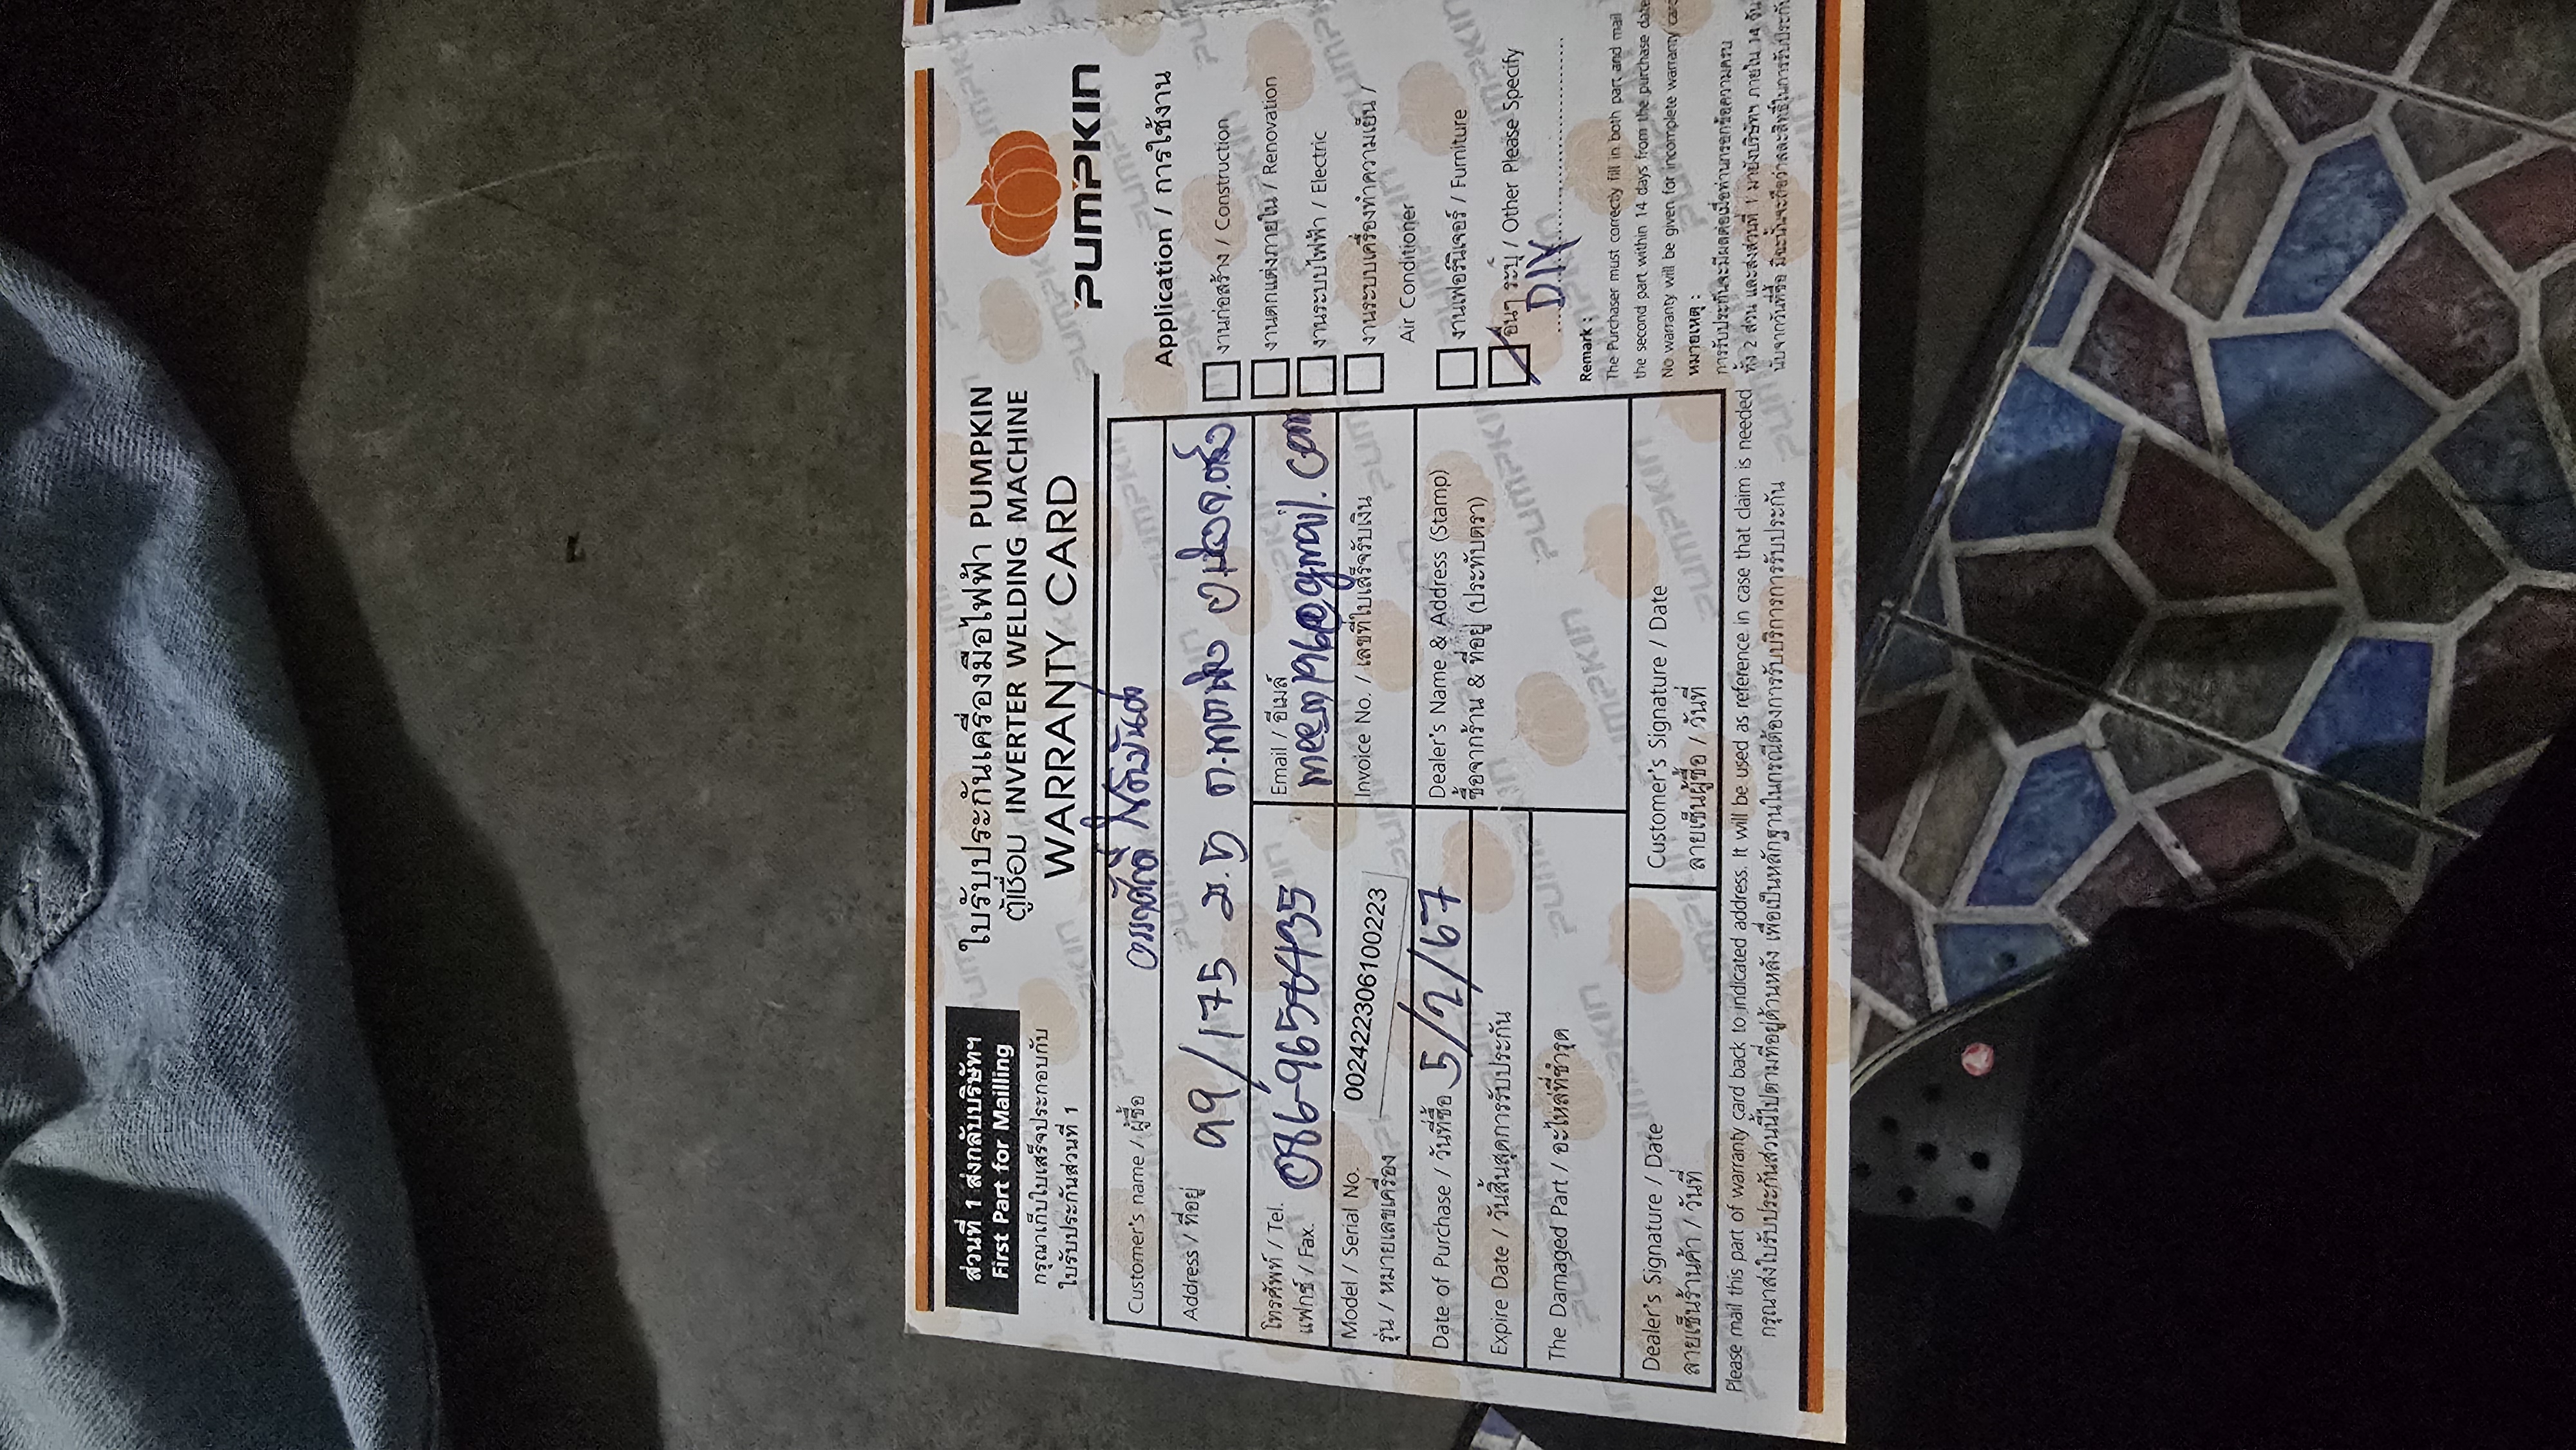 ส่วนที่ 1 ส่งกลับบริษัทฯ
First Part for Mailling
กรุณาเก็บใบเสร็จประกอบกับ
ใบรับประกันส่วนที่ 1
ใบรับประกันเครื่องมือไฟฟ้า PUMPKIN
ตู้เชื่อม INVERTER WELDING MACHINE
WARRANTY CARD
PUMPKIN
Customer's name / ผู้ซื้อ
Address / ที่อยู่ 99/175 ม.5
โทรศัพท์ / Tel. 086-9656435
แฟกซ์ / Fax.
Email / อีเมล์
meem1966@gmail.com
Model / Serial No. 00242230610022​3
รุ่น / หมายเลขเครื่อง
Invoice No. / เลขที่ใบเสร็จรับเงิน
Date of Purchase / วันที่ซื้อ 5/2/67
Dealer's Name & Address (Stamp)
ซื้อจากร้าน & ที่อยู่ (ประทับตรา)
Expire Date / วันสิ้นสุดการรับประกัน
The Damaged Part / อะไหล่ที่ชำรุด
Dealer's Signature / Date
ลายเซ็นร้านค้า / วันที่
Customer's Signature / Date
ลายเซ็นผู้ซื้อ / วันที่
Please mail this part of warranty card back to indicated address. It will be used as reference in case that claim is needed
กรุณาส่งใบรับประกันส่วนนี้ไปตามที่อยู่ด้านหลัง เพื่อเป็นหลักฐานในกรณีต้องการรับบริการการรับประกัน
Application / การใช้งาน
งานก่อสร้าง / Construction
งานตกแต่งภายใน / Renovation
งานระบบไฟฟ้า / Electric
งานระบบเครื่องทำความเย็น /
Air Conditioner
งานเฟอร์นิเจอร์ / Furniture
อื่นๆ ระบุ / Other Please Specify
DIY
Remark :
The Purchaser must correctly fill in both part and mail
the second part within 14 days from the purchase date
No warranty will be given for incomplete warranty card
หมายเหตุ :
การรับประกันจะมีผลต่อเมื่อท่านกรอกข้อความครบ
ทั้ง 2 ส่วน และส่งส่วนที่ 1 มายังบริษัทฯ ภายใน 14 วัน
นับจากวันที่ซื้อ มิฉะนั้นจะถือว่าสละสิทธิ์ในการรับประกัน